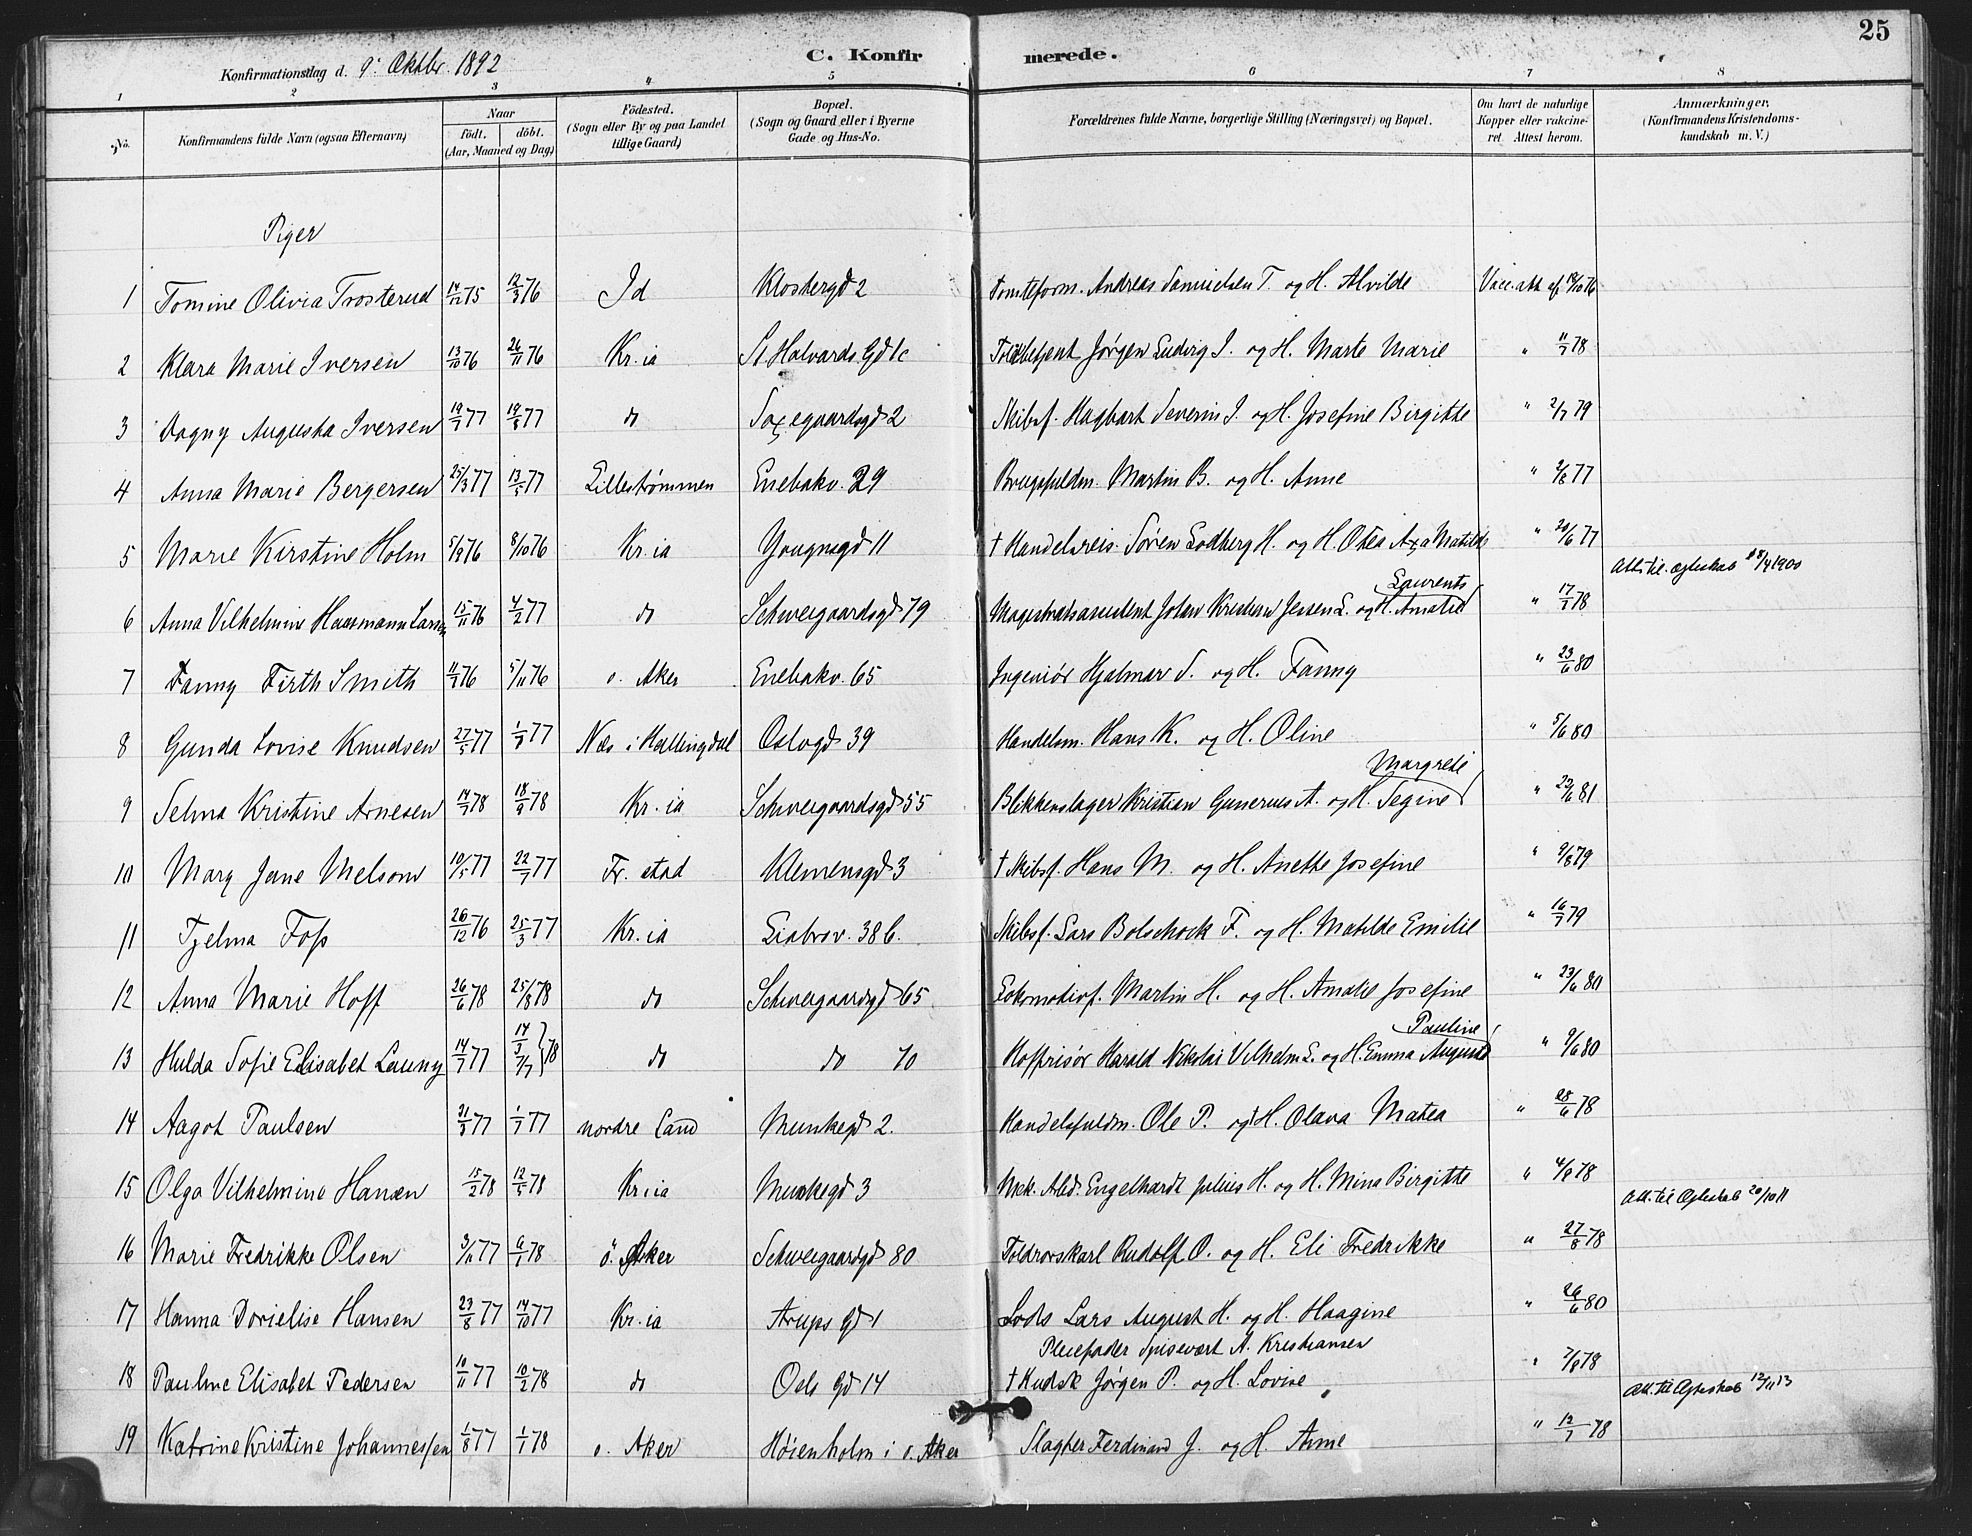 25
Konfirmationsdag d. 9. Oktbr. 1892
C. Konfirmerede.
1 2 3 4 5 6 7 8
No.
Konfirmandens fulde Navn (ogsaa Efternavn)
Naar födt. döbt. (Aar, Maaned og Dag)
Födested. (Sogn eller By og paa Landet tillige Gaard)
Bopæl. (Sogn og Gaard eller i Byerne Gade og Hus-No.
Forældrenes fulde Navne, borgerlige Stilling (Næringsvei) og Bopæl.
Om havt de naturlige Kopper eller vakcineret Attest herom.
Anmærkninger, (Konfirmandens Kristendomskundskab m. V.)
Piger
1 Tomine Olivia Trosterud 14/12 75 12/3 76 Id Klostergd 2 Tomteform. Andreas Samuelsen T. og H. Alvilde Vacc. att. af 14/10 76
2 Klara Marie Iversen 13/10 76 26/11 76 Kr.ia St. Halvards Gd 1c Jørgen Ludvig I. og H. Marte Marie " 11/7 78
3 Dagny Augusta Iversen 19/7 77 19/8 77 do Saxegaardsgd 2 Skibsf. Hagbart Severin I. og H. Josefine Birgitte " 2/7 79
4 Anna Marie Bergersen 25/3 77 13/5 77 Lillestrømmen Enebakv. 29 Brugsfuldm. Martin B. og H. Anne " 2/8 77
5 Marie Kirstine Holm 5/9 76 8/10 76 Kr.ia Youngsgd 11 † Handelsreis. Søren Lodberg H. og H. Otea Axa Matilde " 20/6 77
Att. til Ægteskab /4 1900
Laurents
6 Anna Vilhelmine Haasmann Larsen 15/11 76 4/2 77 do Schweigaardsgd 79 Magistratsassistent Johan Kristian Jensen L. og H. Amalie " 17/7 78
7 Fanny Firth Smith 11/7 76 5/11 76 ö. Aker Enebakv. 65 Ingeniör Hjalmar S. og H. Fanny " 23/6 80
8 Gunda Lovise Knudsen 27/5 77 1/7 77 Næs i Hallingdal Oslogd 39 Handelsm. Hans K. og H. Oline " 5/6 80
Margrete
9 Selma Kristine Arnesen 14/7 78 18/9 78 Kr.ia Schweigaardsgd 55 Blikkenslager Kristian Gunerius A. og H. Segine " 23/6 81
10 Mary Jane Melsom 10/5 77 22/7 77 Fr. stad Klemensgd 3 † Skibsf. Hans M. og H. Anette Josefine " 9/8 79
11 Tjelma Foss 26/12 76 25/3 77 Kr.ia Liabrov. 38b. Skibsf. Lars Bolschock F. og H. Matilde Emilie " 16/7 79
12 Anna Marie Hoff 26/6 78 25/8 78 do Schweigaardsgd 65 Lokomotivf. Martin H. og H. Amalie Josefine " 23/6 80
Pauline
13 Hulda Sofie Elisabet Launy 14/7 77 14/3 7/7 } 78 do do 70 Hoffrisør Harald Nikolai Vilhelm L. og H. Emma Augusta " 9/6 80
14 Aagot Paulsen 21/3 77 1/7 77 nordre Land Munkegd 2. Handelsfuldm. Ole P. og H. Olava Matea " 28/6 78
15 Olga Vilhelmine Hansen 15/2 78 12/5 78 Kr.ia Munkegd 3 Mek. Arbd. Engelhardt Julius H. og H. Mina Birgitte " 4/9 78
Att. til Ægteskab 20/10 11
16 Marie Fredrikke Olsen 3/11 77 6/1 78 ö. Aker Schweigaardsgd 80 Toldrorskarl Rudolf O. og H. Eli Fredrikke " 27/8 78
17 Hanna Dorielise Hansen 23/8 77 14/10 77 Kr.ia Arups Gd 1 Lods Lars August H. og H. Haagine " 26/6 80
Pleiefader Spisevært A. Kristiansen
18 Pauline Elisabet Pedersen 10/11 77 10/2 78 do Oslo Gd 14 † Kudsk Jørgen P. og H. Lovise " 7/8 78
Att. til Ægteskab 12/11 13
19 Katrine Kristine Johannessen 1/8 77 1/1 78 ö. Aker Høienholm i ö. Aker Slagter Ferdinand J. og H. Anne " 12/7 78